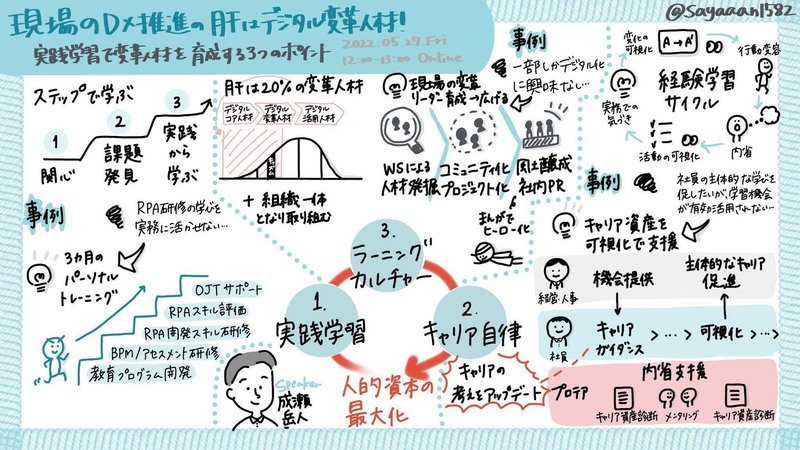 現場のDX推進の肝はデジタル変革人材!
実践学習で変革人材を育成する3つのポイント
2022.05.27.Fri
12:00-13:00 Online
@Sayaaan1582
ステップで学ぶ
1
関心
2
課題
発見
3
実践
から
学ぶ
事例
RPA研修の学びを
実務に活かせない…
3ヵ月の
パーソナル
トレーニング
OJTサポート
RPAスキル評価
RPA開発スキル研修
BPM/アセスメント研修
教育プログラム開発
肝は20%の変革人材
デジタル
コア人材
デジタル
変革人材
デジタル
活用人材
+ 組織一体
となり取り組む
現場の変革
リーダー育成→広げる
事例
一部しかデジタル化
に興味ない…
WSによる
人材発掘
コミュニティ化
プロジェクト化
風土醸成
社内PR
まんがで
ヒーロー化
変化の
可視化
A→A'
行動変容
経験学習
サイクル
実務での
気づき
活動の可視化
内省
事例
社員の主体的な学びを
促したいが、学習機会
が有効活用されない…
キャリア資産を
可視化で支援
経営・人事
機会提供
主体的なキャリア
促進
社員
キャリア
ガイダンス
>…>
可視化
>…>
プロテア
内省支援
キャリア資産診断
メンタリング
キャリア資産診断
3.
ラーニング
カルチャー
1.
実践学習
2.
キャリア自律
人的資本の
最大化
キャリアの
考えをアップデート
Speaker
成瀬
岳人